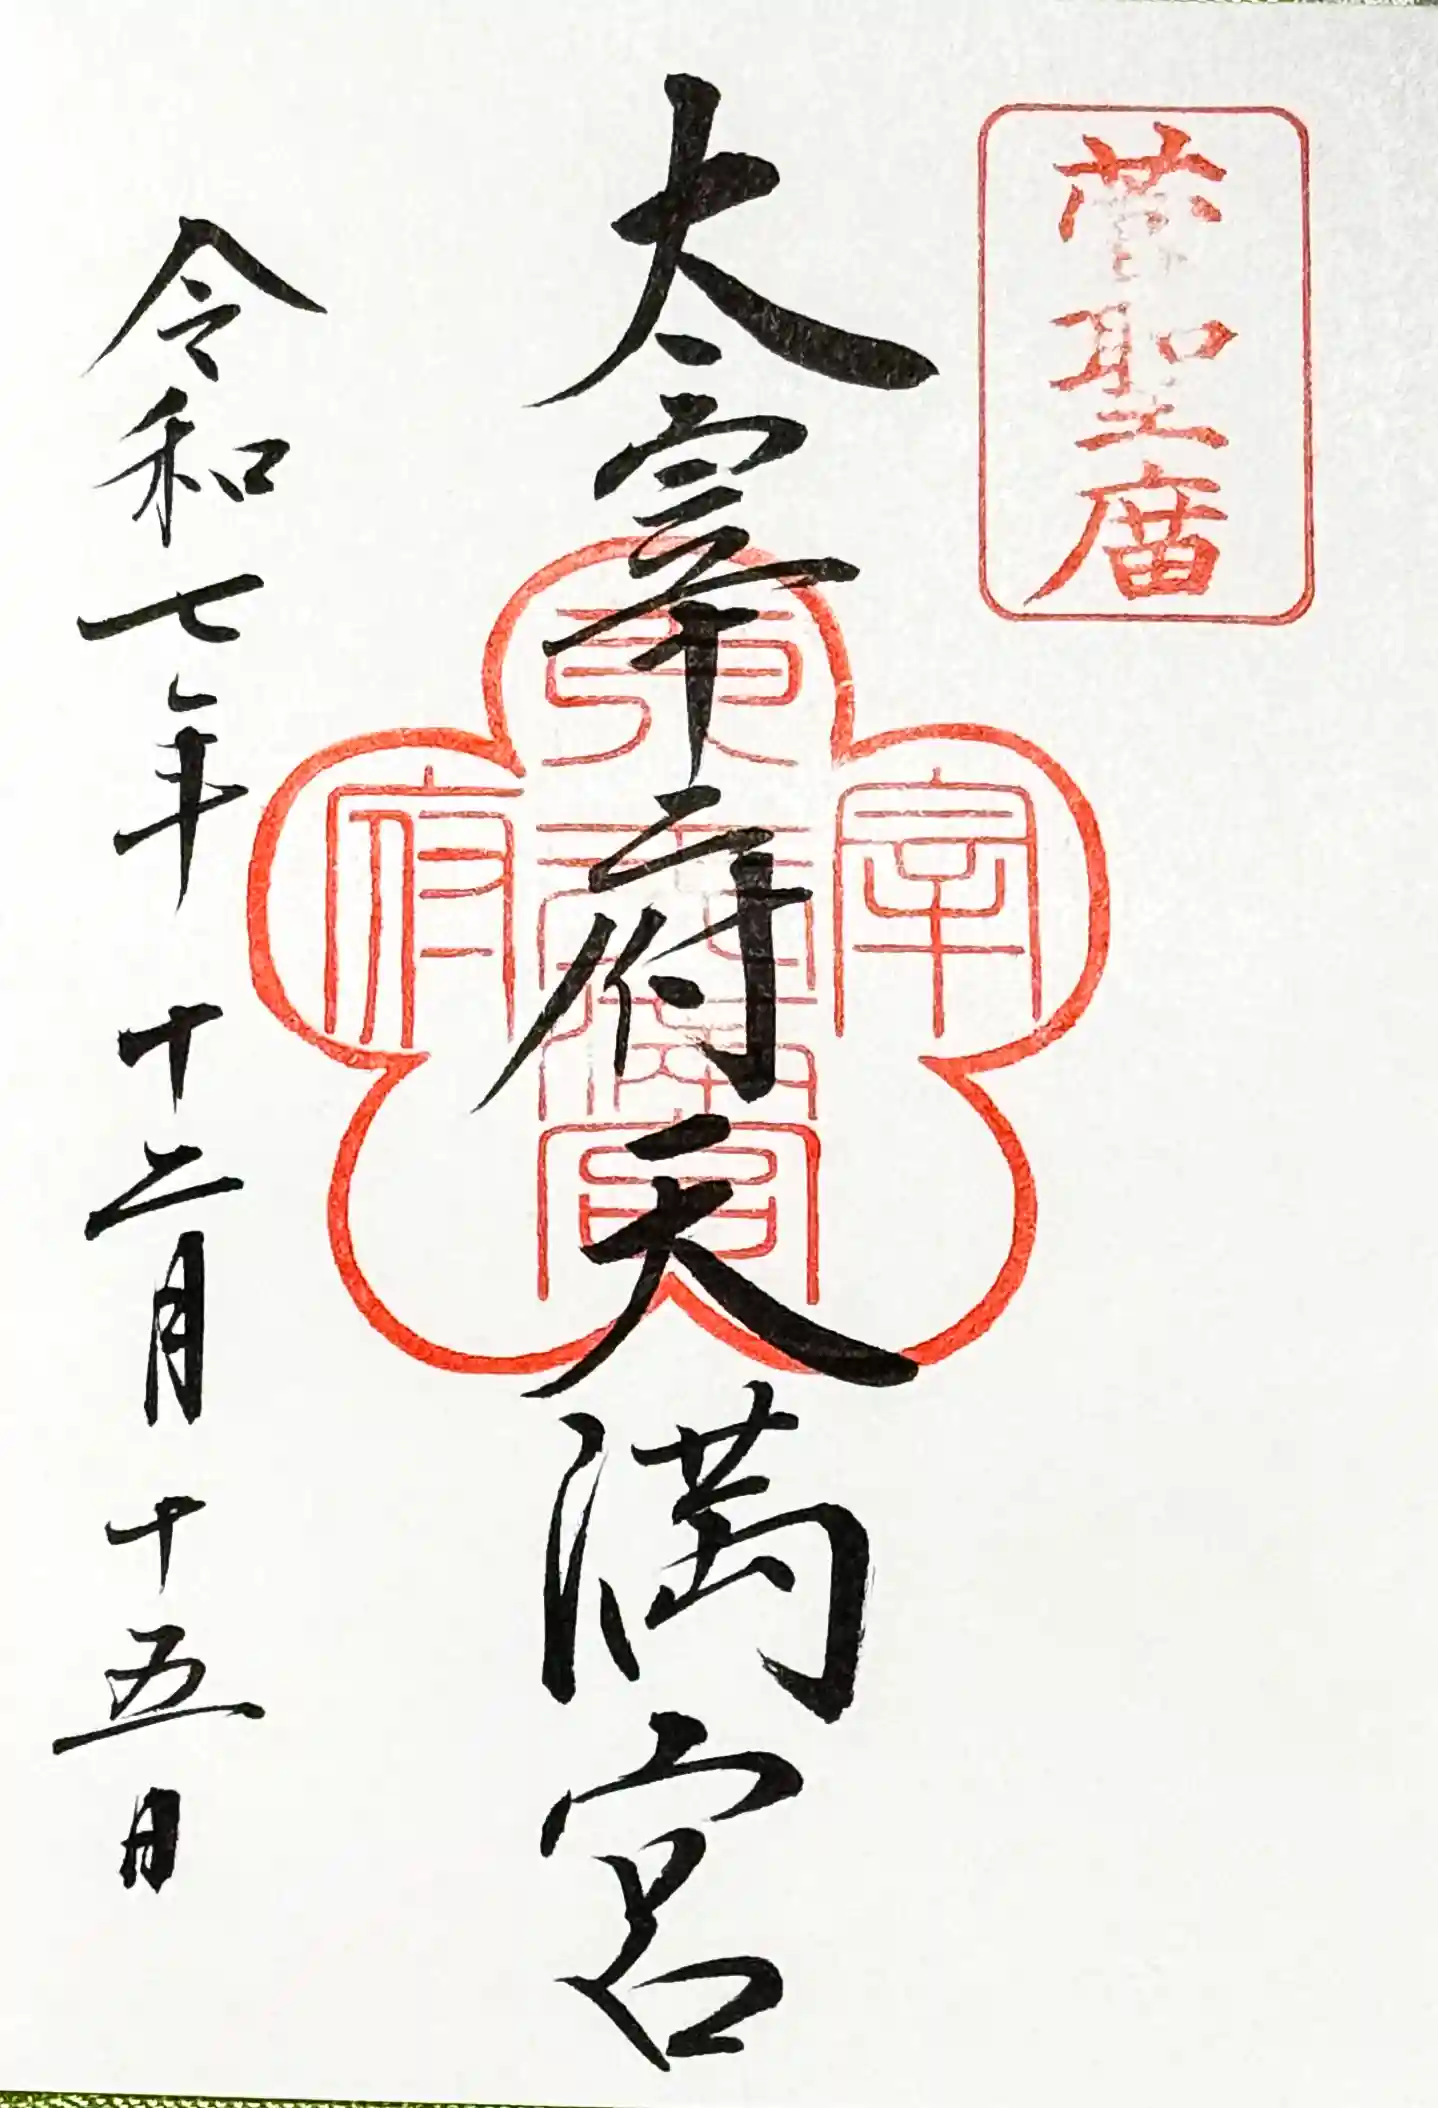 菅聖庿
太宰府天満宮
宰
府
天満宮
令和七年 十二月 十五日